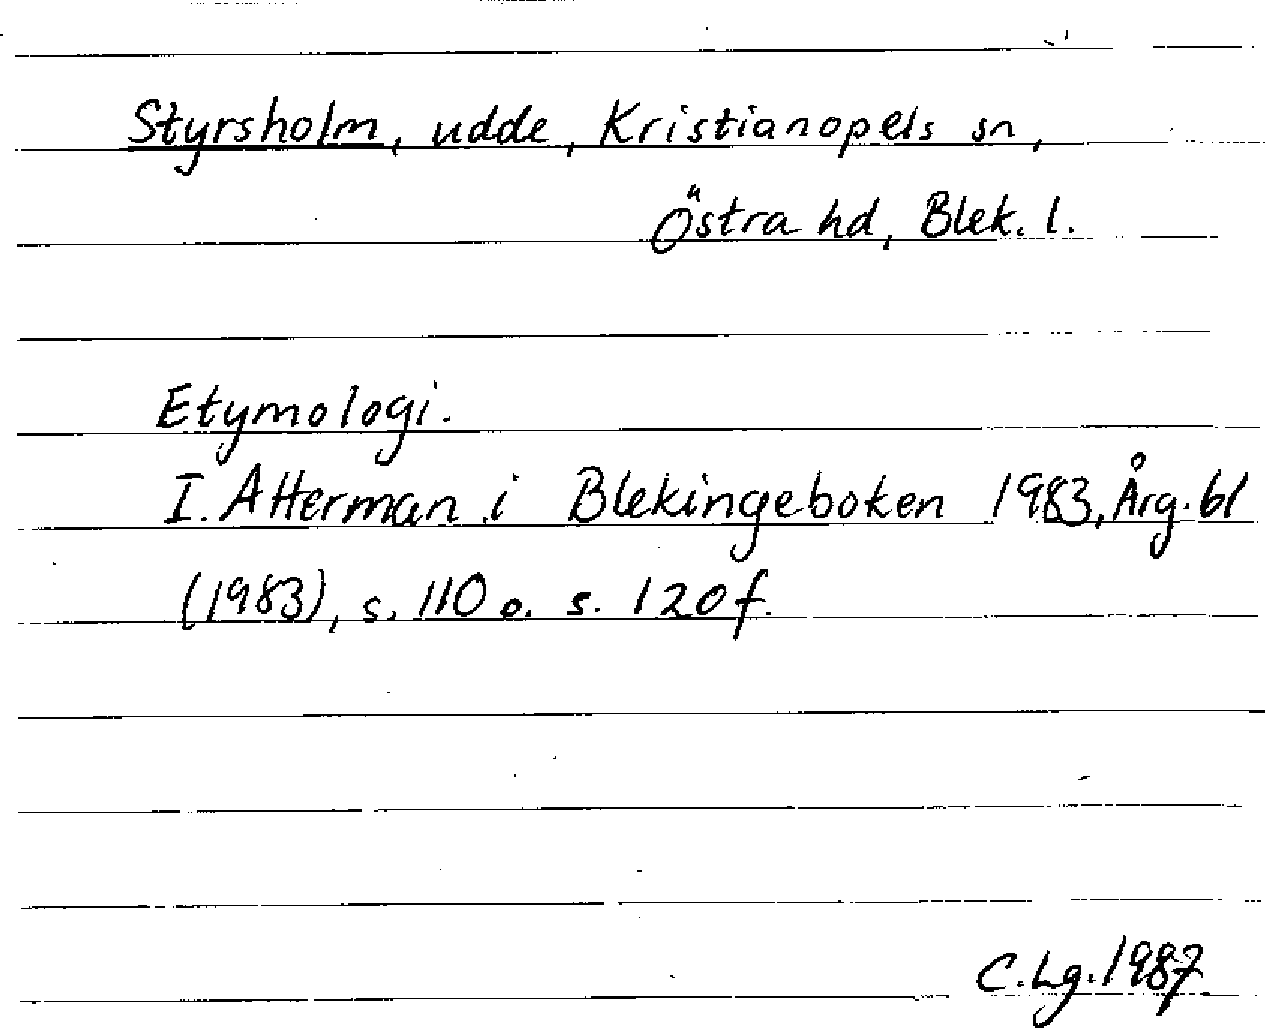 Styrsholm, udde, Kristianopels sn,
Östra hd, Blek. l.
Etymologi.
I. Atterman i Blekingeboken 1983, Årg. 61
(1983), s. 110 o. s. 120 f.
C. Lg. 1987